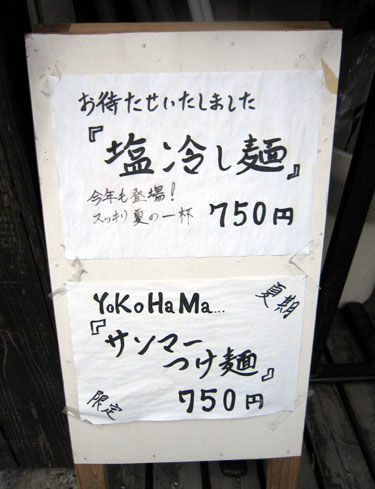 お待たせいたしました
『塩冷し麺』
今年も登場!
スッキリ夏の一杯 750円
YoKoHaMa...
夏期
『サンマー
つけ麺』
限定
750円